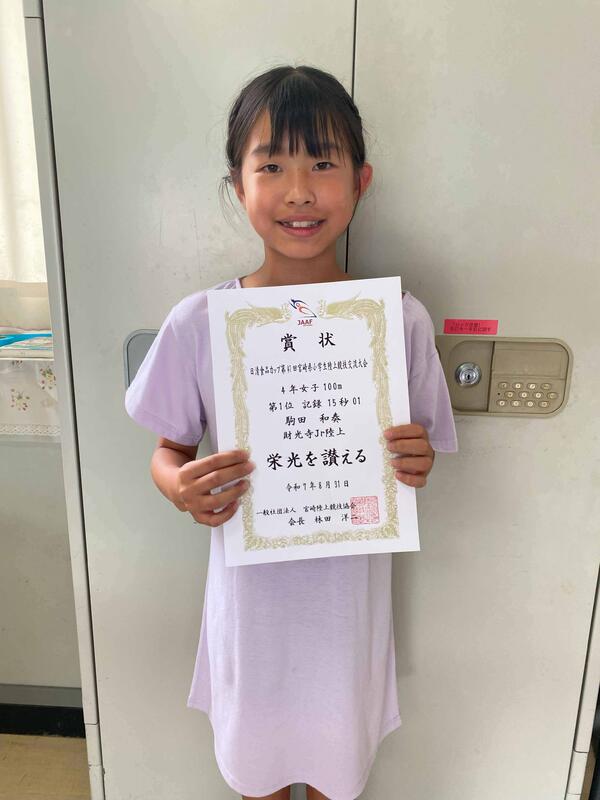 JAAF
賞状
日清食品カップ第41回宮崎県小学生陸上競技交流大会
4年女子100m
第1位 記録 15秒01
駒田 和奏
財光寺Jr陸上
栄光を讃える
令和7年8月31日
一般社団法人 宮崎陸上競技協会
会長 林田 洋二